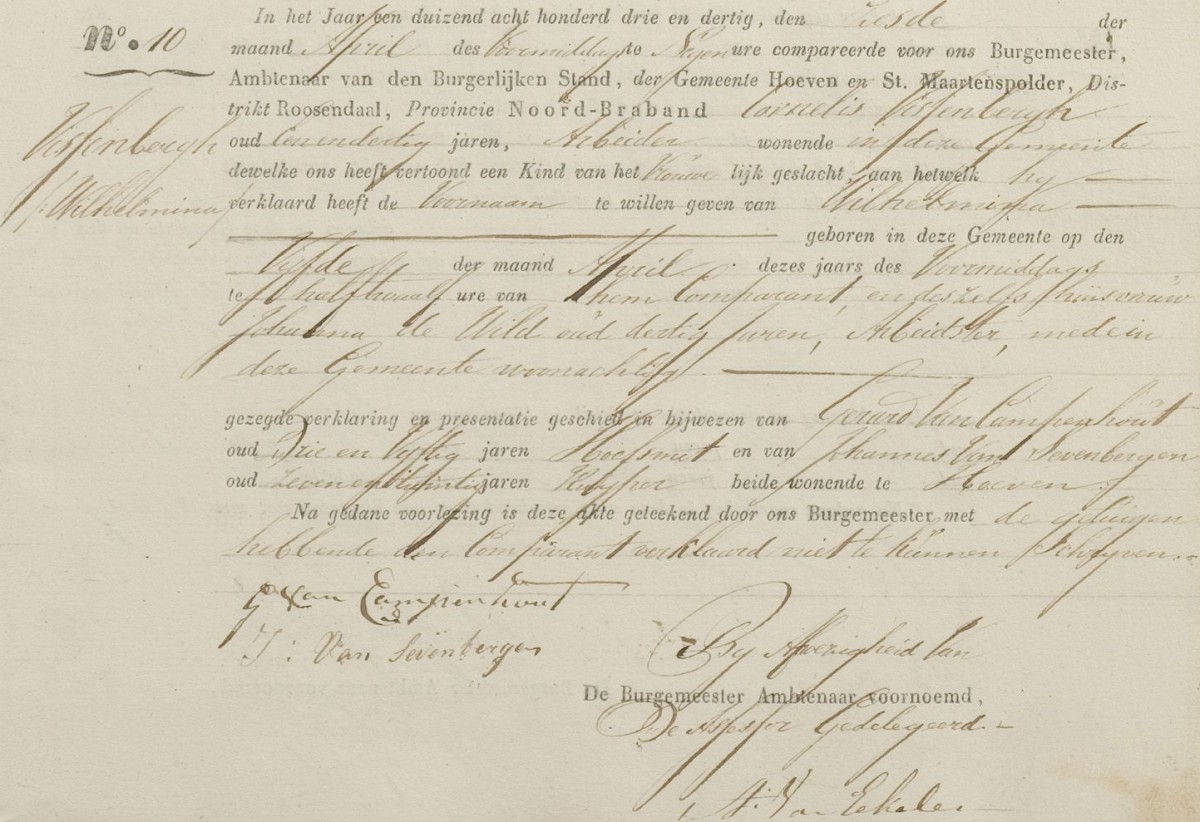 No. 10
In het Jaar een duizend acht honderd drie en dertig, den Zesde der
maand April des Voormiddags te Negen ure compareerde voor ons Burgemeester,
Ambtenaar van den Burgerlijken Stand, der Gemeente Hoeven en St. Maartenspolder, Dis-
trikt Roosendaal, Provincie Noord-Braband Cornelis Vissenbergh
Vissenbergh
oud een en dertig jaren, Arbeider wonende in deze Gemeente
dewelke ons heeft vertoond een Kind van het Vrouwe lijk geslacht, aan hetwelk hy
Wilhelmina
verklaard heeft de Voornaam te willen geven van Wilhelmina
geboren in deze Gemeente op den
Vyfde der maand April dezes jaars des Voormiddags
te half twaalf ure van hem Comparant, en deszelfs huisvrouw
Adriana de Wild oud dertig Jaren, Arbeidster, mede in
deze Gemeente woonachtig.
gezegde verklaring en presentatie geschied in bijwezen van Gerard Van Campenhout
oud Drie en Vyftig jaren Hoefsmit en van Johannes Van Sevenbergen
oud Zeven en twintig jaren Kuyper beide wonende te Hoeven.
Na gedane voorlezing is deze akte geteekend door ons Burgemeester met de getuigen
hebbende den Comparant verklaard niet te kunnen Schryven.
G Van Campenhout
J: Van Sevenbergen
By Afwezigheid Van
De Burgemeester Ambtenaar voornoemd,
De Assessor Gedelegeerd.
A. Van Eekelen